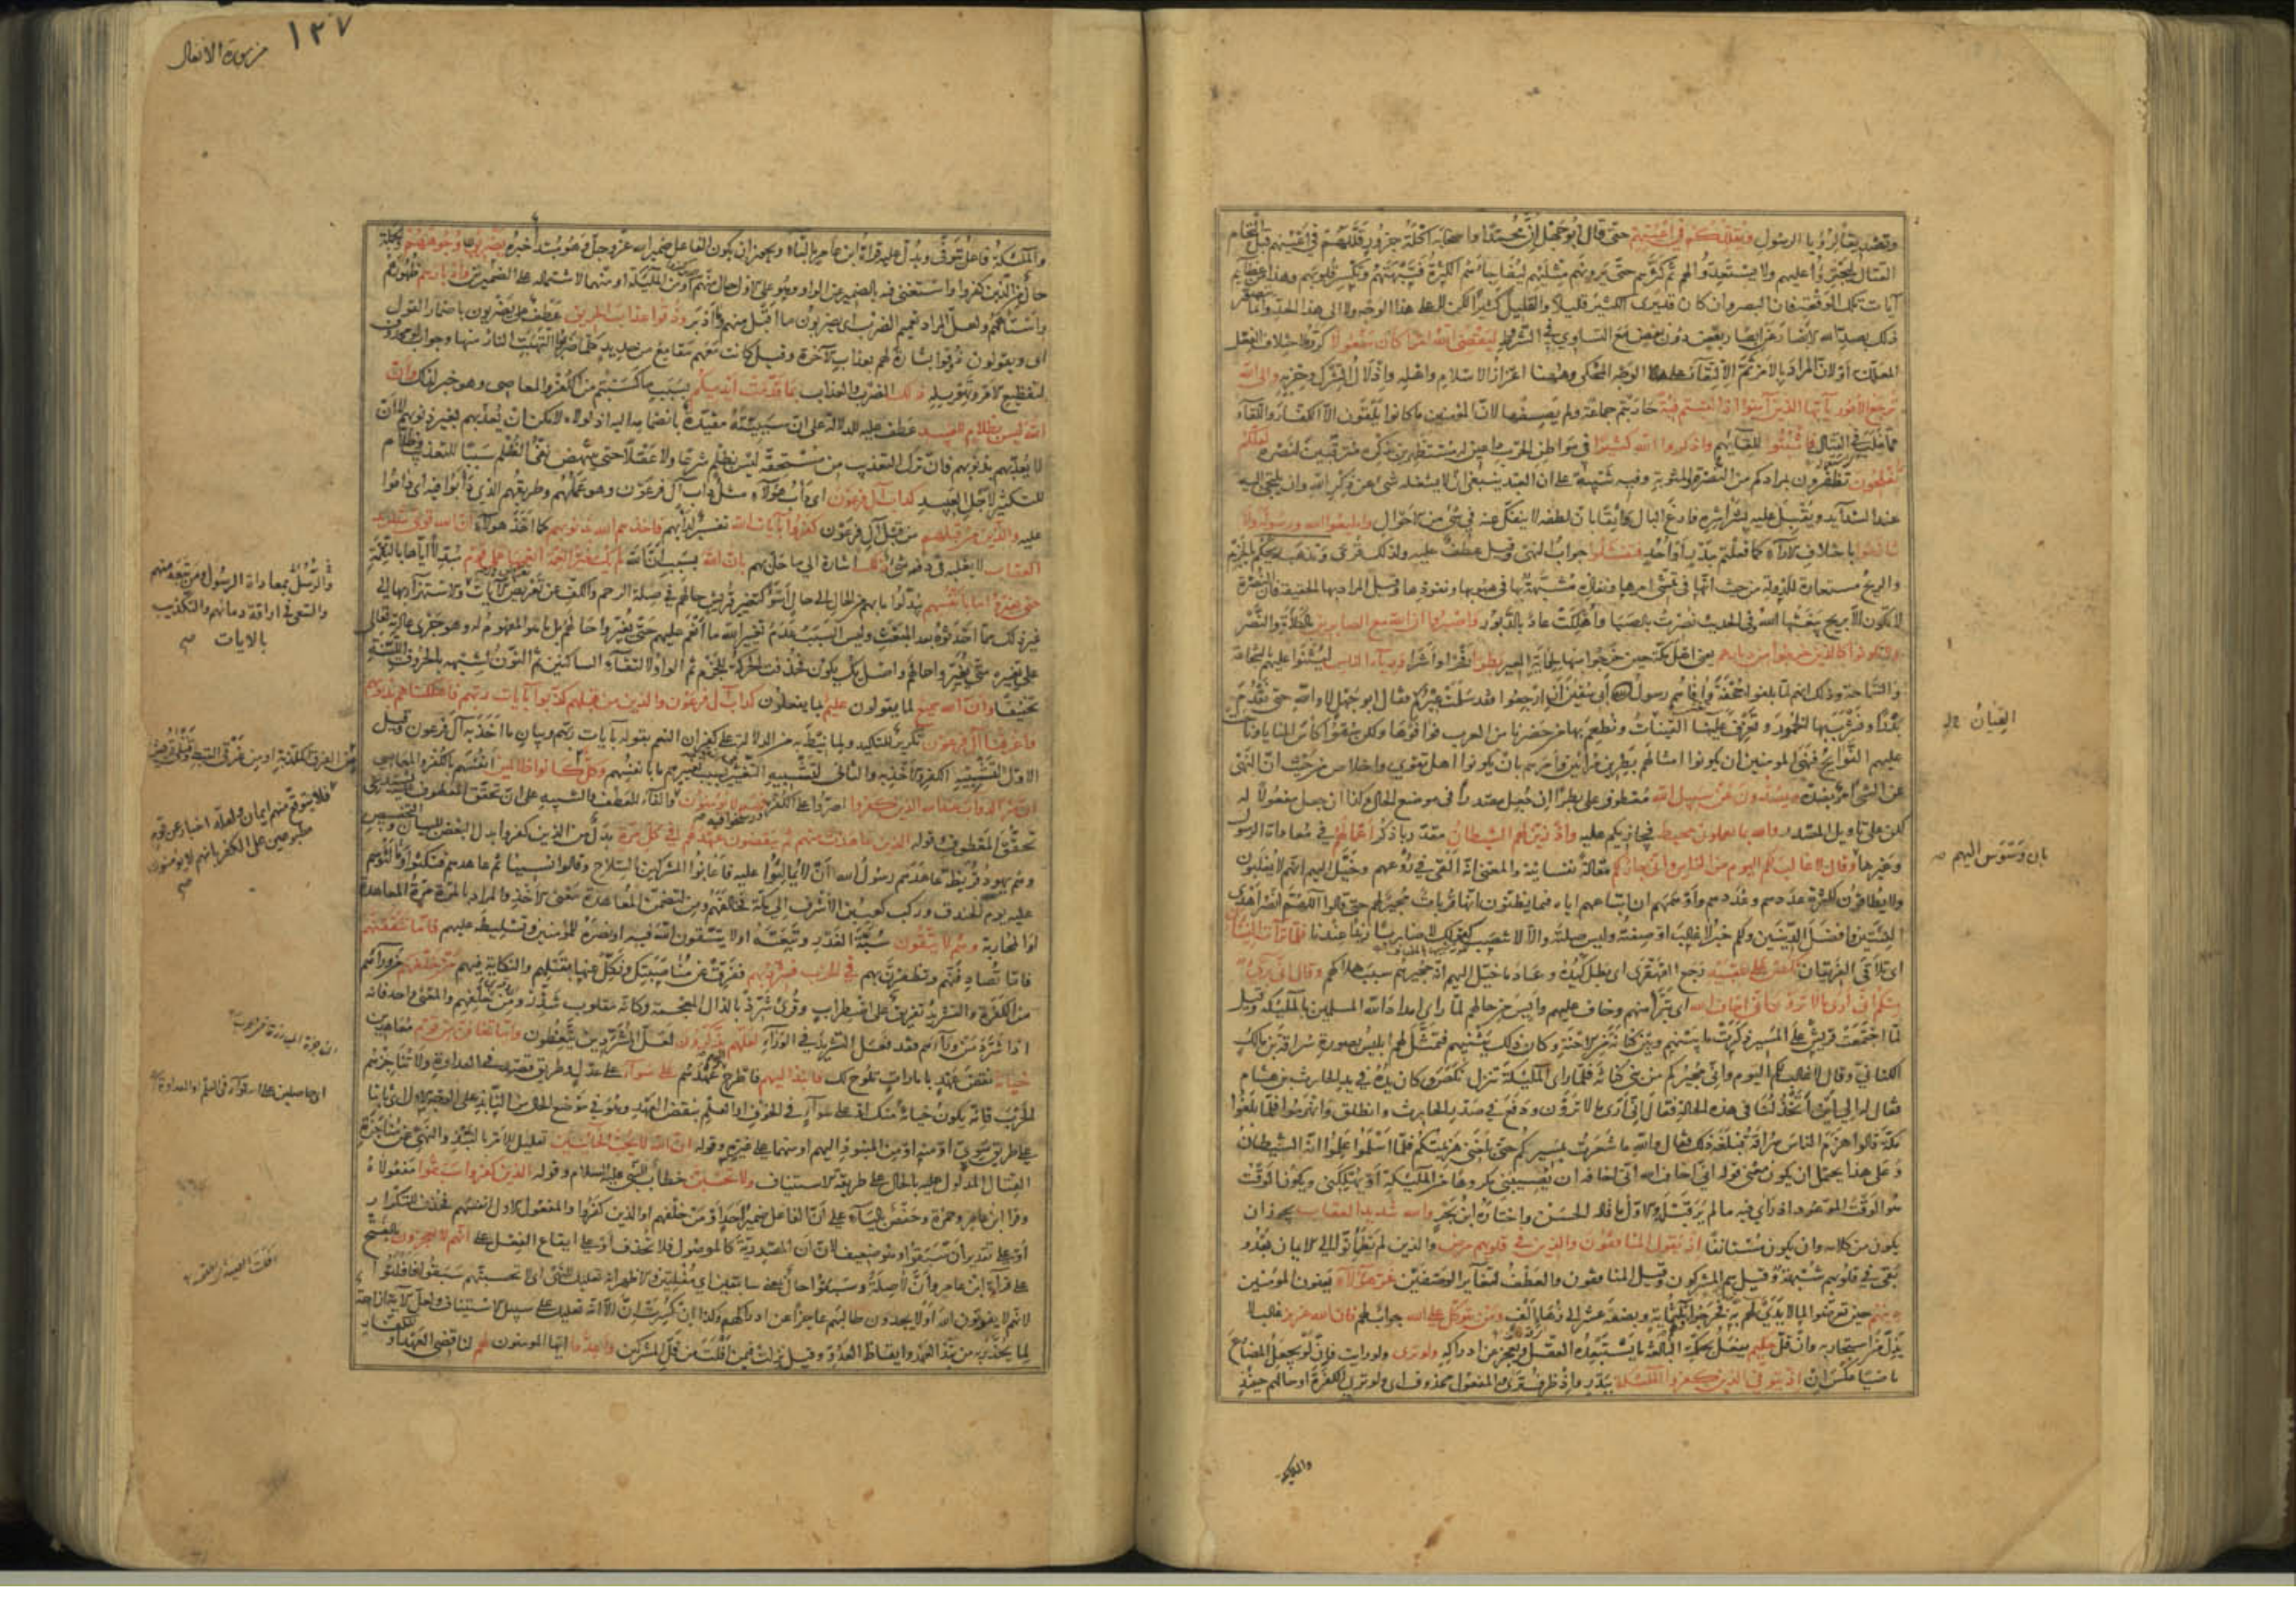 وتصديقا لرؤيا الرسول ويقللكم في اعينهم حتى قال ابو جهل ان محمدا واصحابه اكلة جزور قللهم في اعينهم قبل التحام
القتال ليجترؤا عليهم ولا يستعدوا لهم ثم كثرهم حتى يرونهم مثليهم لتفاجأهم الكثرة فتبهتهم وتكسر قلوبهم وهذا من عظايم
آيات تلك الوقعة فان البصر وان كان قد يرى الكثير قليلا والقليل كثيرا لكن لا على هذا الوجه ولا الى هذا الحد وانما يتصور
ذلك بصد الله الابصار عن ابصار بعض دون بعض مع التساوي في الشروط ليقضي الله امرا كان مفعولا كرره لاختلاف الفعل
المعلل به او لان المراد بالامر ثم الالتقاء على الوجه المحكي وههنا اعزاز الاسلام واهله واذلال الشرك وحزبه والى الله
ترجع الامور يا ايها الذين آمنوا اذا لقيتم فئة حاربتم جماعة ولم يصفها لان المؤمنين ما كانوا يلقون الا الكفار واللقاء
مما غلب في القتال فاثبتوا للقائهم واذكروا الله كثيرا في مواطن الحرب داعين له مستظهرين بذكره مترقبين لنصره لعلكم
تفلحون تظفرون بمرادكم من النصرة والمثوبة وفيه تنبيه على ان العبد ينبغي ان لا يشغله شئ عن ذكر الله وان يلتجئ اليه
عند الشدايد ويقبل عليه بشراشره فارغ البال واثقا بان لطفه لا ينفك عنه في شئ من الاحوال واطيعوا الله ورسوله ولا
تنازعوا باختلاف الآراء كما فعلتم ببدر او احد فتفشلوا جواب النهي وقيل عطف عليه ولذلك قرئ وتذهب ريحكم بالجزم
والريح مستعارة للدولة من حيث انها في تمشي امرها ونفاذه مشبهة بها في هبوبها ونفوذها وقيل المراد بها الحقيقة فان النصرة
لا تكون الا بريح يبعثها الله وفي الحديث نصرت بالصبا واهلكت عاد بالدبور واصبروا ان الله مع الصابرين بالكلاءة والنصر
ولا تكونوا كالذين خرجوا من ديارهم يعني اهل مكة حين خرجوا منها لحماية العير بطرا فخرا واشرا ورئاء الناس ليثنوا عليهم بالشجاعة
والسماحة وذلك انهم لما بلغوا الجحفة وافاهم رسول ابي سفيان ان ارجعوا فقد سلمت عيركم فقال ابو جهل لا والله حتى نقدم
بدرا ونشرب بها الخمور وتعزف علينا القينات ونطعم بها من حضرنا من العرب فوافوها ولكن سقوا كأس المنايا وناحت
عليهم النوايح فنهى المؤمنين ان يكونوا امثالهم بطرين مرائين وامرهم بان يكونوا اهل تقوى واخلاص من حيث ان النهي
عن الشئ امر بضده ويصدون عن سبيل الله معطوف على بطرا ان جعل مصدرا في موضع الحال وكذا ان جعل مفعولا له
لكن على تاويل المصدر والله بما يعملون محيط فيجازيكم عليه واذ زين لهم الشيطان مقدر باذكر اعمالهم في معاداة الرسول
وغيرها وقال لا غالب لكم اليوم من الناس واني جار لكم مقالة نفسانية والمعنى انه القى في روعهم وخيل اليهم انهم لا يغلبون
ولا يطاقون لكثرة عددهم وعددهم واوهمهم ان اتباعهم اياه فيما يظنون انها قربات مجير لهم حتى قالوا اللهم انصر اهدى
الفئتين وافضل الدينين ولكم خبر لا غالب او صفته وليس صلته والا لانتصب كقولك لا ضاربا زيدا عندنا فلما تراءت الفئتان
اي تلاقى الفريقان نكص على عقبيه رجع القهقرى اي بطل كيده وعاد ما خيل اليهم انه مجيرهم سبب هلاكهم وقال اني برئ
منكم اني ارى ما لا ترون اني اخاف الله اي تبرأ منهم وخاف عليهم وايس من حالهم لما راى امداد الله المسلمين بالملئكة وقيل
لما اجتمعت قريش على المسير ذكرت ما بينهم وبين كنانة من الاحنة وكاد ذلك يثنيهم فتمثل لهم ابليس بصورة سراقة بن مالك
الكناني وقال لا غالب لكم اليوم واني مجيركم من بني كنانة فلما راى الملئكة تنزل نكص وكان يده في يد الحارث بن هشام
فقال له الى اين اتخذلنا في هذه الحالة فقال اني ارى ما لا ترون ودفع في صدر الحارث وانطلق وانهزموا فلما بلغوا
مكة قالوا هزم الناس سراقة فبلغه ذلك فقال والله ما شعرت بمسيركم حتى بلغتني هزيمتكم فلما اسلموا علموا انه الشيطان
وعلى هذا يحتمل ان يكون معنى قوله اني اخاف الله اني اخافه ان يصيبني بمكروه من الملئكة او يهلكني ويكون الوقت
هو الوقت الموعود اذ راى فيه ما لم ير قبله والاول ما قاله الحسن واختاره ابن بحر والله شديد العقاب يجوز ان
يكون من كلامه وان يكون مستأنفا اذ يقول المنافقون والذين في قلوبهم مرض والذين لم يطمئنوا الى الايمان بعد و
بقي في قلوبهم شبهة وقيل هم المشركون وقيل المنافقون والعطف لتغاير الوصفين غر هؤلاء يعنون المؤمنين
دينهم حين تعرضوا لما لا يدي لهم به فخرجوا وهم ثلثمائة وبضعة عشر الى زهاء الف ومن يتوكل على الله جواب لهم فان الله عزيز غالب لا
يذل من استجار به وان قل حكيم يفعل بحكمته البالغة ما يستبعده العقل ويعجز عن ادراكه ولو ترى ولو رايت فان لو يجعل المضارع
ماضيا عكس ان اذ يتوفى الذين كفروا الملئكة ببدر واذ ظرف ترى والمفعول محذوف اي ولو ترى الكفرة او حالهم حينئذ
القيان
بان وسوس اليهم
والملئكة
١٣٧
من سورة الانفال
والملئكة فاعل يتوفى ويدل عليه قراءة ابن عامر بالتاء ويجوز ان يكون الفاعل ضمير الله عز وجل وهو مبتدأ خبره يضربون وجوههم والجملة
حال من الذين كفروا واستغنى فيه بالضمير عن الواو وهو على الاول حال منهم او من الملئكة او منهما لاشتماله على الضميرين وادبارهم ظهورهم
واستاههم ولعل المراد تعميم الضرب اي يضربون ما اقبل منهم وما ادبر وذوقوا عذاب الحريق عطف على يضربون باضمار القول
اي ويقولون ذوقوا بشارة لهم بعذاب الآخرة وقيل كانت معهم مقامع من حديد كلما ضربوا التهبت النار منها وجواب لو محذوف
لتفظيع الامر وتهويله ذلك الضرب والعذاب بما قدمت ايديكم بسبب ما كسبتم من الكفر والمعاصي وهو خبر لذلك وان
الله ليس بظلام للعبيد عطف عليه للدلالة على ان سببيته مقيدة بانضمامه اليه اذ لولاه لامكن ان يعذبهم بغير ذنوبهم لا ان
لا يعذبهم بذنوبهم فان ترك التعذيب من مستحقه ليس بظلم شرعا ولا عقلا حتى ينتهض نفي الظلم سببا للتعذيب وظلام
للتكثير لاجل العبيد كدأب آل فرعون اي دأب هؤلاء مثل دأب آل فرعون وهو عملهم وطريقهم الذي دأبوا فيه اي داموا
عليه والذين من قبلهم من قبل آل فرعون كفروا بآيات الله تفسير لدأبهم فاخذهم الله بذنوبهم كما اخذ هؤلاء ان الله قوي شديد
العقاب لا يغلبه في دفعه شئ ذلك اشارة الى ما حل بهم بان الله بسبب ان الله لم يك مغيرا نعمة انعمها على قوم مبدلا اياها بالنقمة
حتى يغيروا ما بانفسهم يبدلوا ما بهم من الحال الى حال اسوأ كتغيير قريش حالهم في صلة الرحم والكف عن تعرض الآيات والاستهزاء بها الى
غير ذلك مما احدثوه بعد المبعث وليس السبب عدم تغيير الله ما انعم عليهم حتى يغيروا حالهم بل ما هو المفهوم له وهو جري عادته تعالى
على تغييره متى يغيروا حالهم واصل يك يكون فحذفت الحركة للجزم ثم الواو لالتقاء الساكنين ثم النون لشبهه بالحروف اللينة
تخفيفا وان الله سميع لما يقولون عليم بما يفعلون كدأب آل فرعون والذين من قبلهم كذبوا بآيات ربهم فاهلكناهم بذنوبهم
واغرقنا آل فرعون تكرير للتاكيد ولما نيط به من الدلالة على كفران النعم بقوله بآيات ربهم وبيان ما اخذ به آل فرعون وقيل
الاول لتشبيه الكفر والاخذ به والثاني لتشبيه التغيير بسبب تغييرهم ما بانفسهم وكل كانوا ظالمين انفسهم بالكفر والمعاصي
ان شر الدواب عند الله الذين كفروا اصروا على الكفر ورسخوا فيه فهم لا يؤمنون والفاء للعطف والتنبيه على ان تحقق المعطوف يستدعي
تحقق المعطوف وقوله الذين عاهدت منهم ثم ينقضون عهدهم في كل مرة بدل من الذين كفروا بدل البعض للبيان والتخصيص
وهم يهود قريظة عاهدهم رسول الله ان لا يمالئوا عليه فاعانوا المشركين بالسلاح وقالوا نسينا ثم عاهدهم فنكثوا ومالئوهم
عليه يوم الخندق وركب كعب بن الاشرف الى مكة فحالفهم ومن لتضمن المعاهدة معنى الاخذ والمراد بالمرة مرة المعاهدة
او المحاربة وهم لا يتقون سبة الغدر ومغبته او لا يتقون الله فيه او نصره للمؤمنين وتسليطه عليهم فاما تثقفنهم
فاما تصادفنهم وتظفرن بهم في الحرب فشرد بهم ففرق عن مناصبتك ونكل عنها بقتلهم والنكاية فيهم من خلفهم من وراءهم
من الكفرة والتشريد تفريق على اضطراب وقرئ شرذ بالذال المعجمة وكانه مقلوب شذر ومن خلفهم والمعنى واحد فانه
اذا شرد من وراءهم فقد فعل التشريد في الوراء لعلهم يذكرون لعل المشردين يتعظون واما تخافن من قوم معاهدين
خيانة نقض عهد بامارات تلوح لك فانبذ اليهم فاطرح اليهم عهدهم على سواء على عدل وطريق قصد في العداوة ولا تناجزهم
الحرب فانه يكون خيانة منك او على سواء في الخوف او العلم بنقض العهد وهو في موضع الحال من النابذ على الوجه الاول اي ثابتا
على طريق سوي او منه او من المنبوذ اليهم او منهما على غيره وقوله ان الله لا يحب الخائنين تعليل للامر بالنبذ والنهي عن مناجزة
القتال المدلول عليه بالحال على طريقة الاستيناف ولا تحسبن خطاب للنبي عليه السلام وقوله الذين كفروا سبقوا مفعولاه
وقرا ابن عامر وحمزة وحفص بالياء على ان الفاعل ضمير احد او من خلفهم او الذين كفروا والمفعول الاول انفسهم فحذف للتكرار
او على تقدير ان سبقوا وهو ضعيف لان ان المصدرية كالموصول فلا تحذف او على ايقاع الفعل على انهم لا يعجزون بالفتح
على قراءة ابن عامر وان لا صلة وسبقوا حال بمعنى سابقين اي مفلتين والاظهر انه تعليل للنهي اي لا تحسبنهم سبقوا فافلتوا
لانهم لا يفوتون الله او لا يجدون طالبهم عاجزا عن ادراكهم وكذا ان كسرت ان الا انه تعليل على سبيل الاستيناف ولعل الآية ازاحة
لما يحذر به من نبذ العهد وايقاظ العدو وقيل نزلت فيمن افلت من فل المشركين واعدوا ايها المؤمنون لهم لناقضي العهد او للكفار
والرسل بمعاداة الرسول ومن تبعه منهم
والسعي في اراقة دمائهم والتكذيب
بالآيات صح
من الغرقى المكذبة او من غرقى القبط وقتلى قريش
فلا يتوقع منهم ايمان ولعله اخبار عن قوم
مطبوعين على الكفر بانهم لا يؤمنون
صح